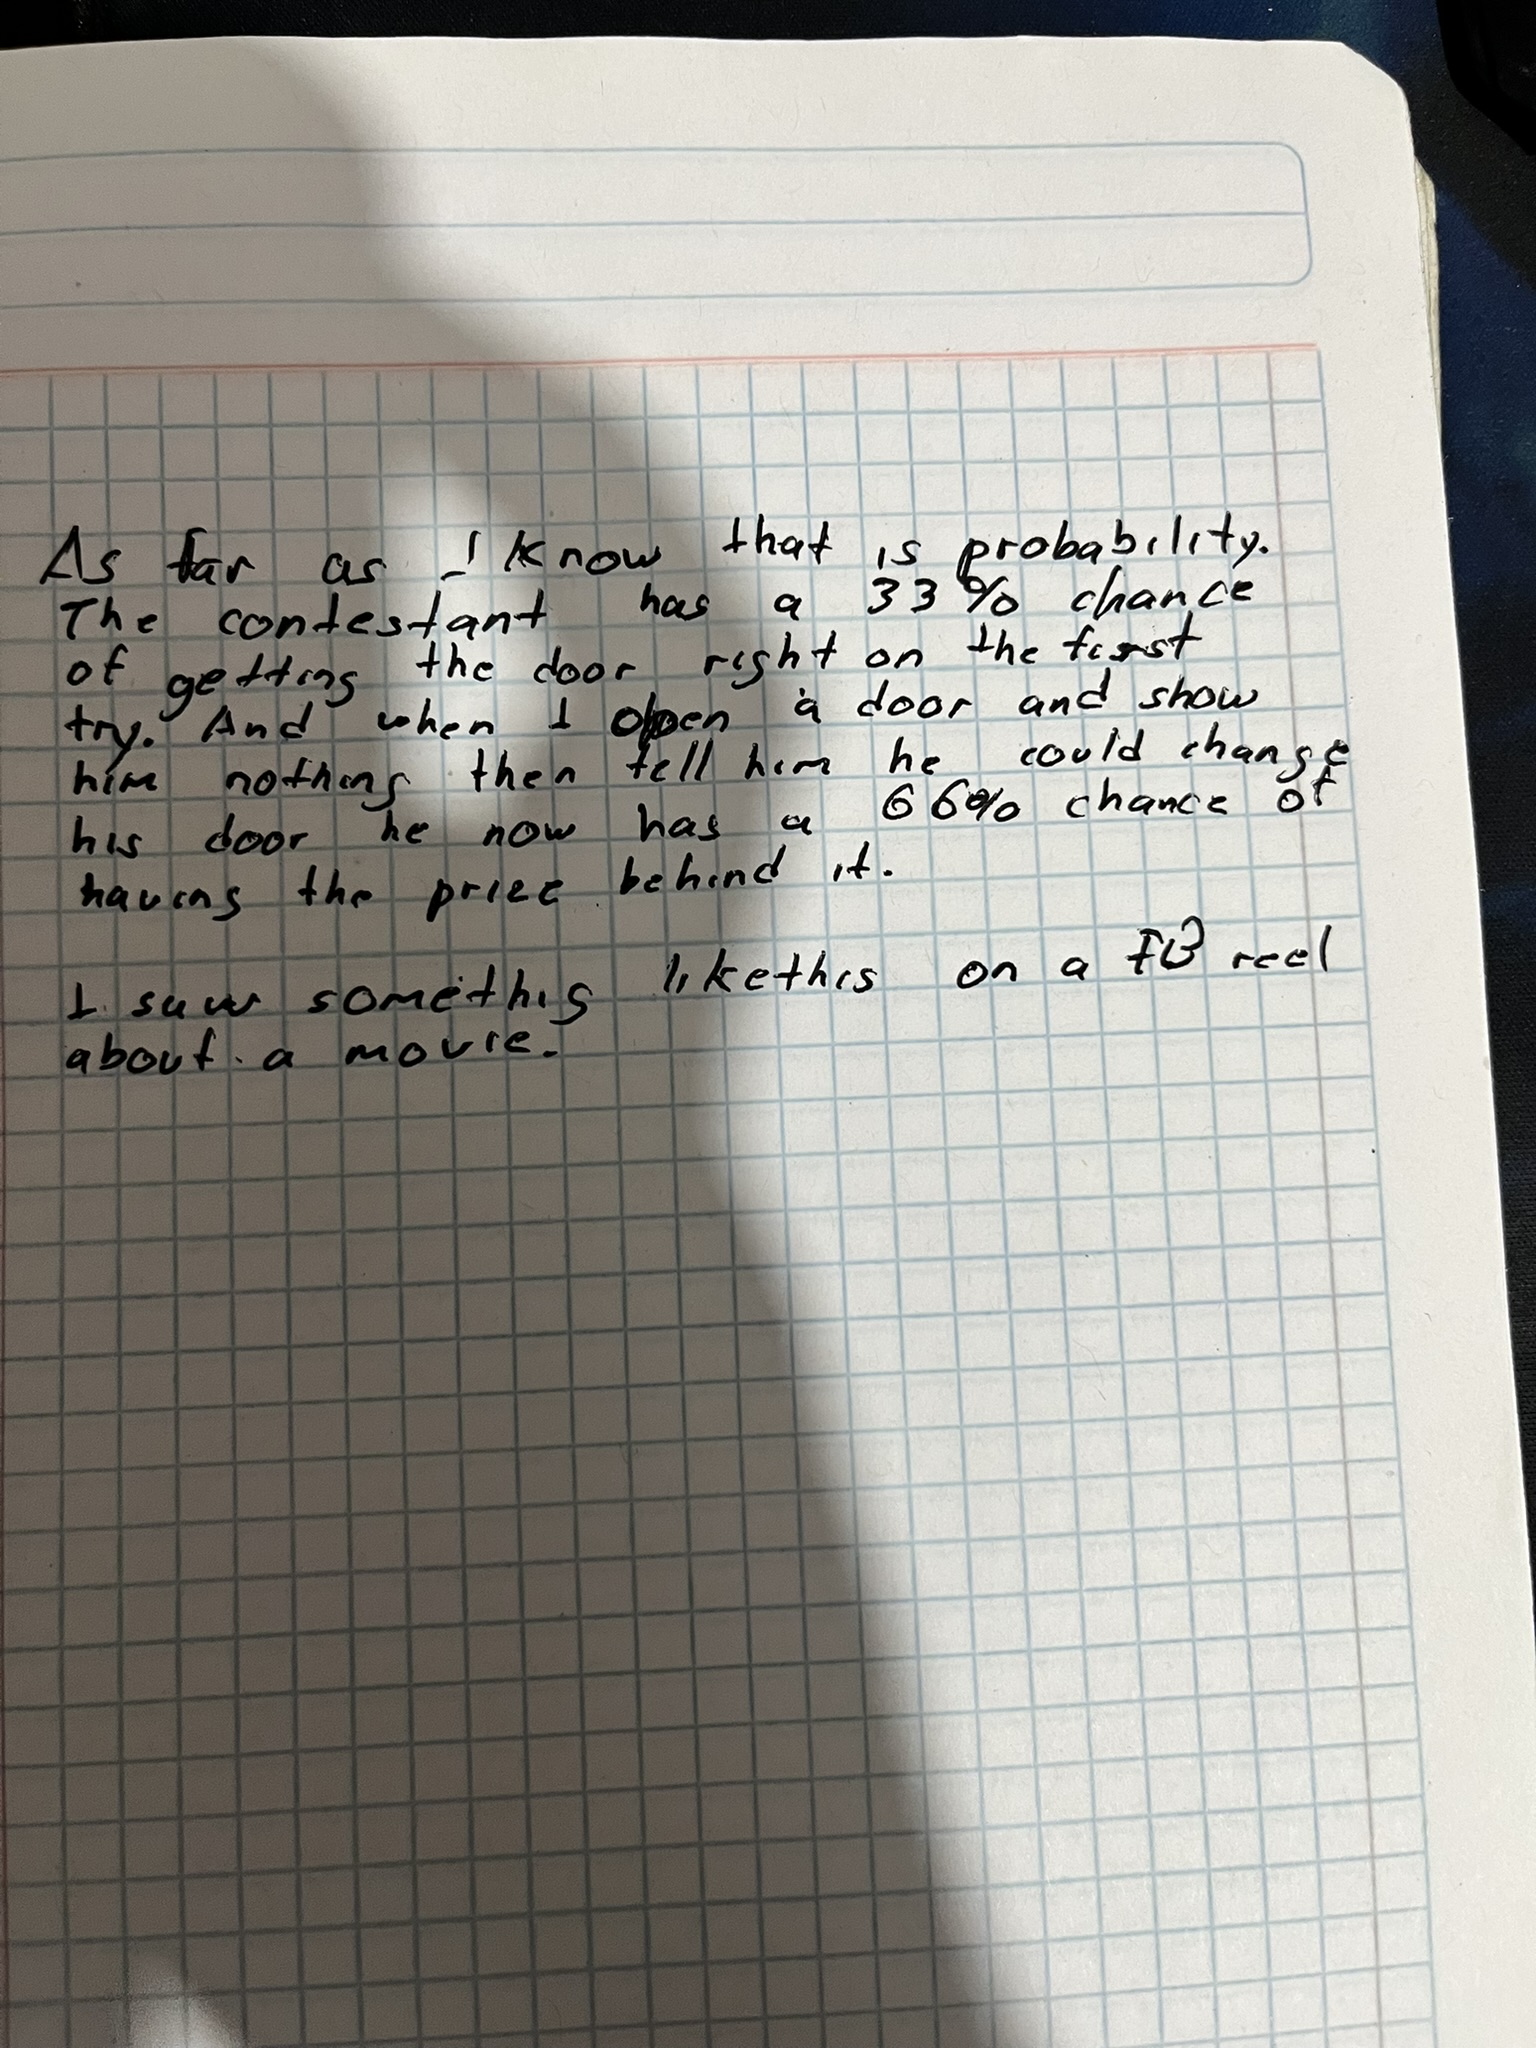 As far as I know that is probability.
The contestant has a 33% chance
of getting the door right on the first
try. And when I open a door and show
him nothing then tell him he could change
his door he now has a 66% chance of
having the prize behind it.
I saw somethig like this on a FB reel
about a movie.